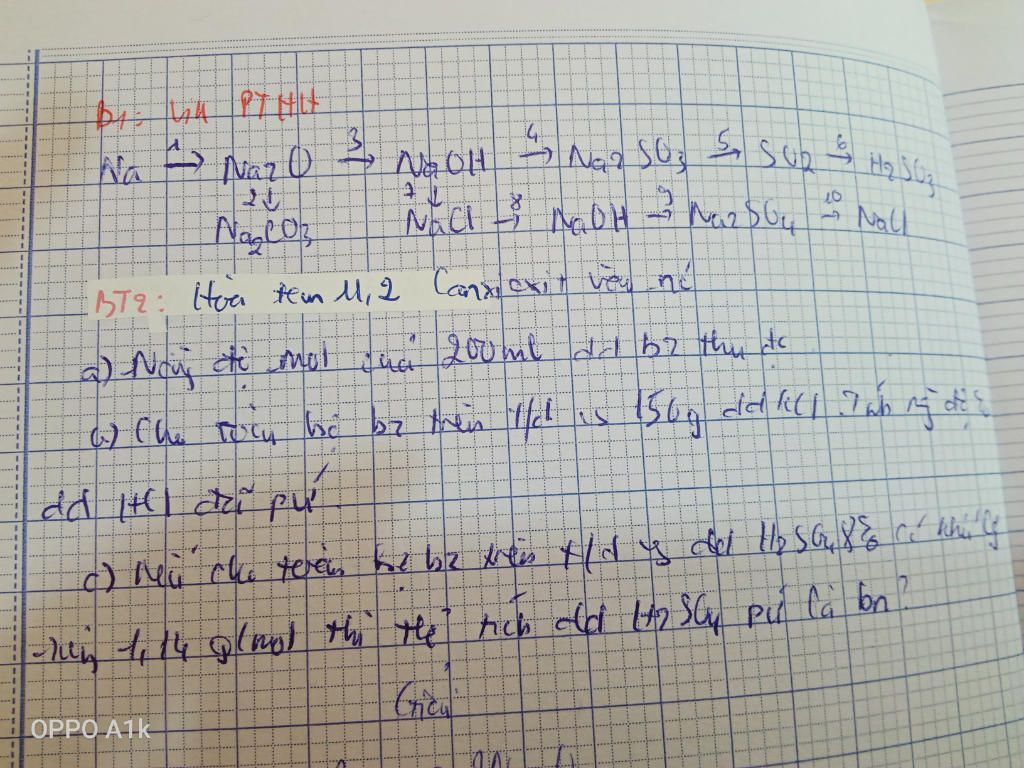 B1: PTHH
Na 1→ Na2O 3→ NaOH 4→ Na2SO3 5→ SO2 6→ H2SO3
2↓ 7↓
Na2CO3 NaCl 8→ NaOH 9→ Na2SO4 10→ NaCl
BT2: Hòa 11,2 Canxi oxit nc
a) Nồng độ mol của 200ml dd bz thu đc
b) Cho bz trên t/d 150g dd HCl
dd HCl đã pứ
c) Nếu cho bz trên t/d dd H2SO4 8% có khối lg
riêng 1,14 g/ml thì thể tích dd H2SO4 pứ là bn?
OPPO A1k